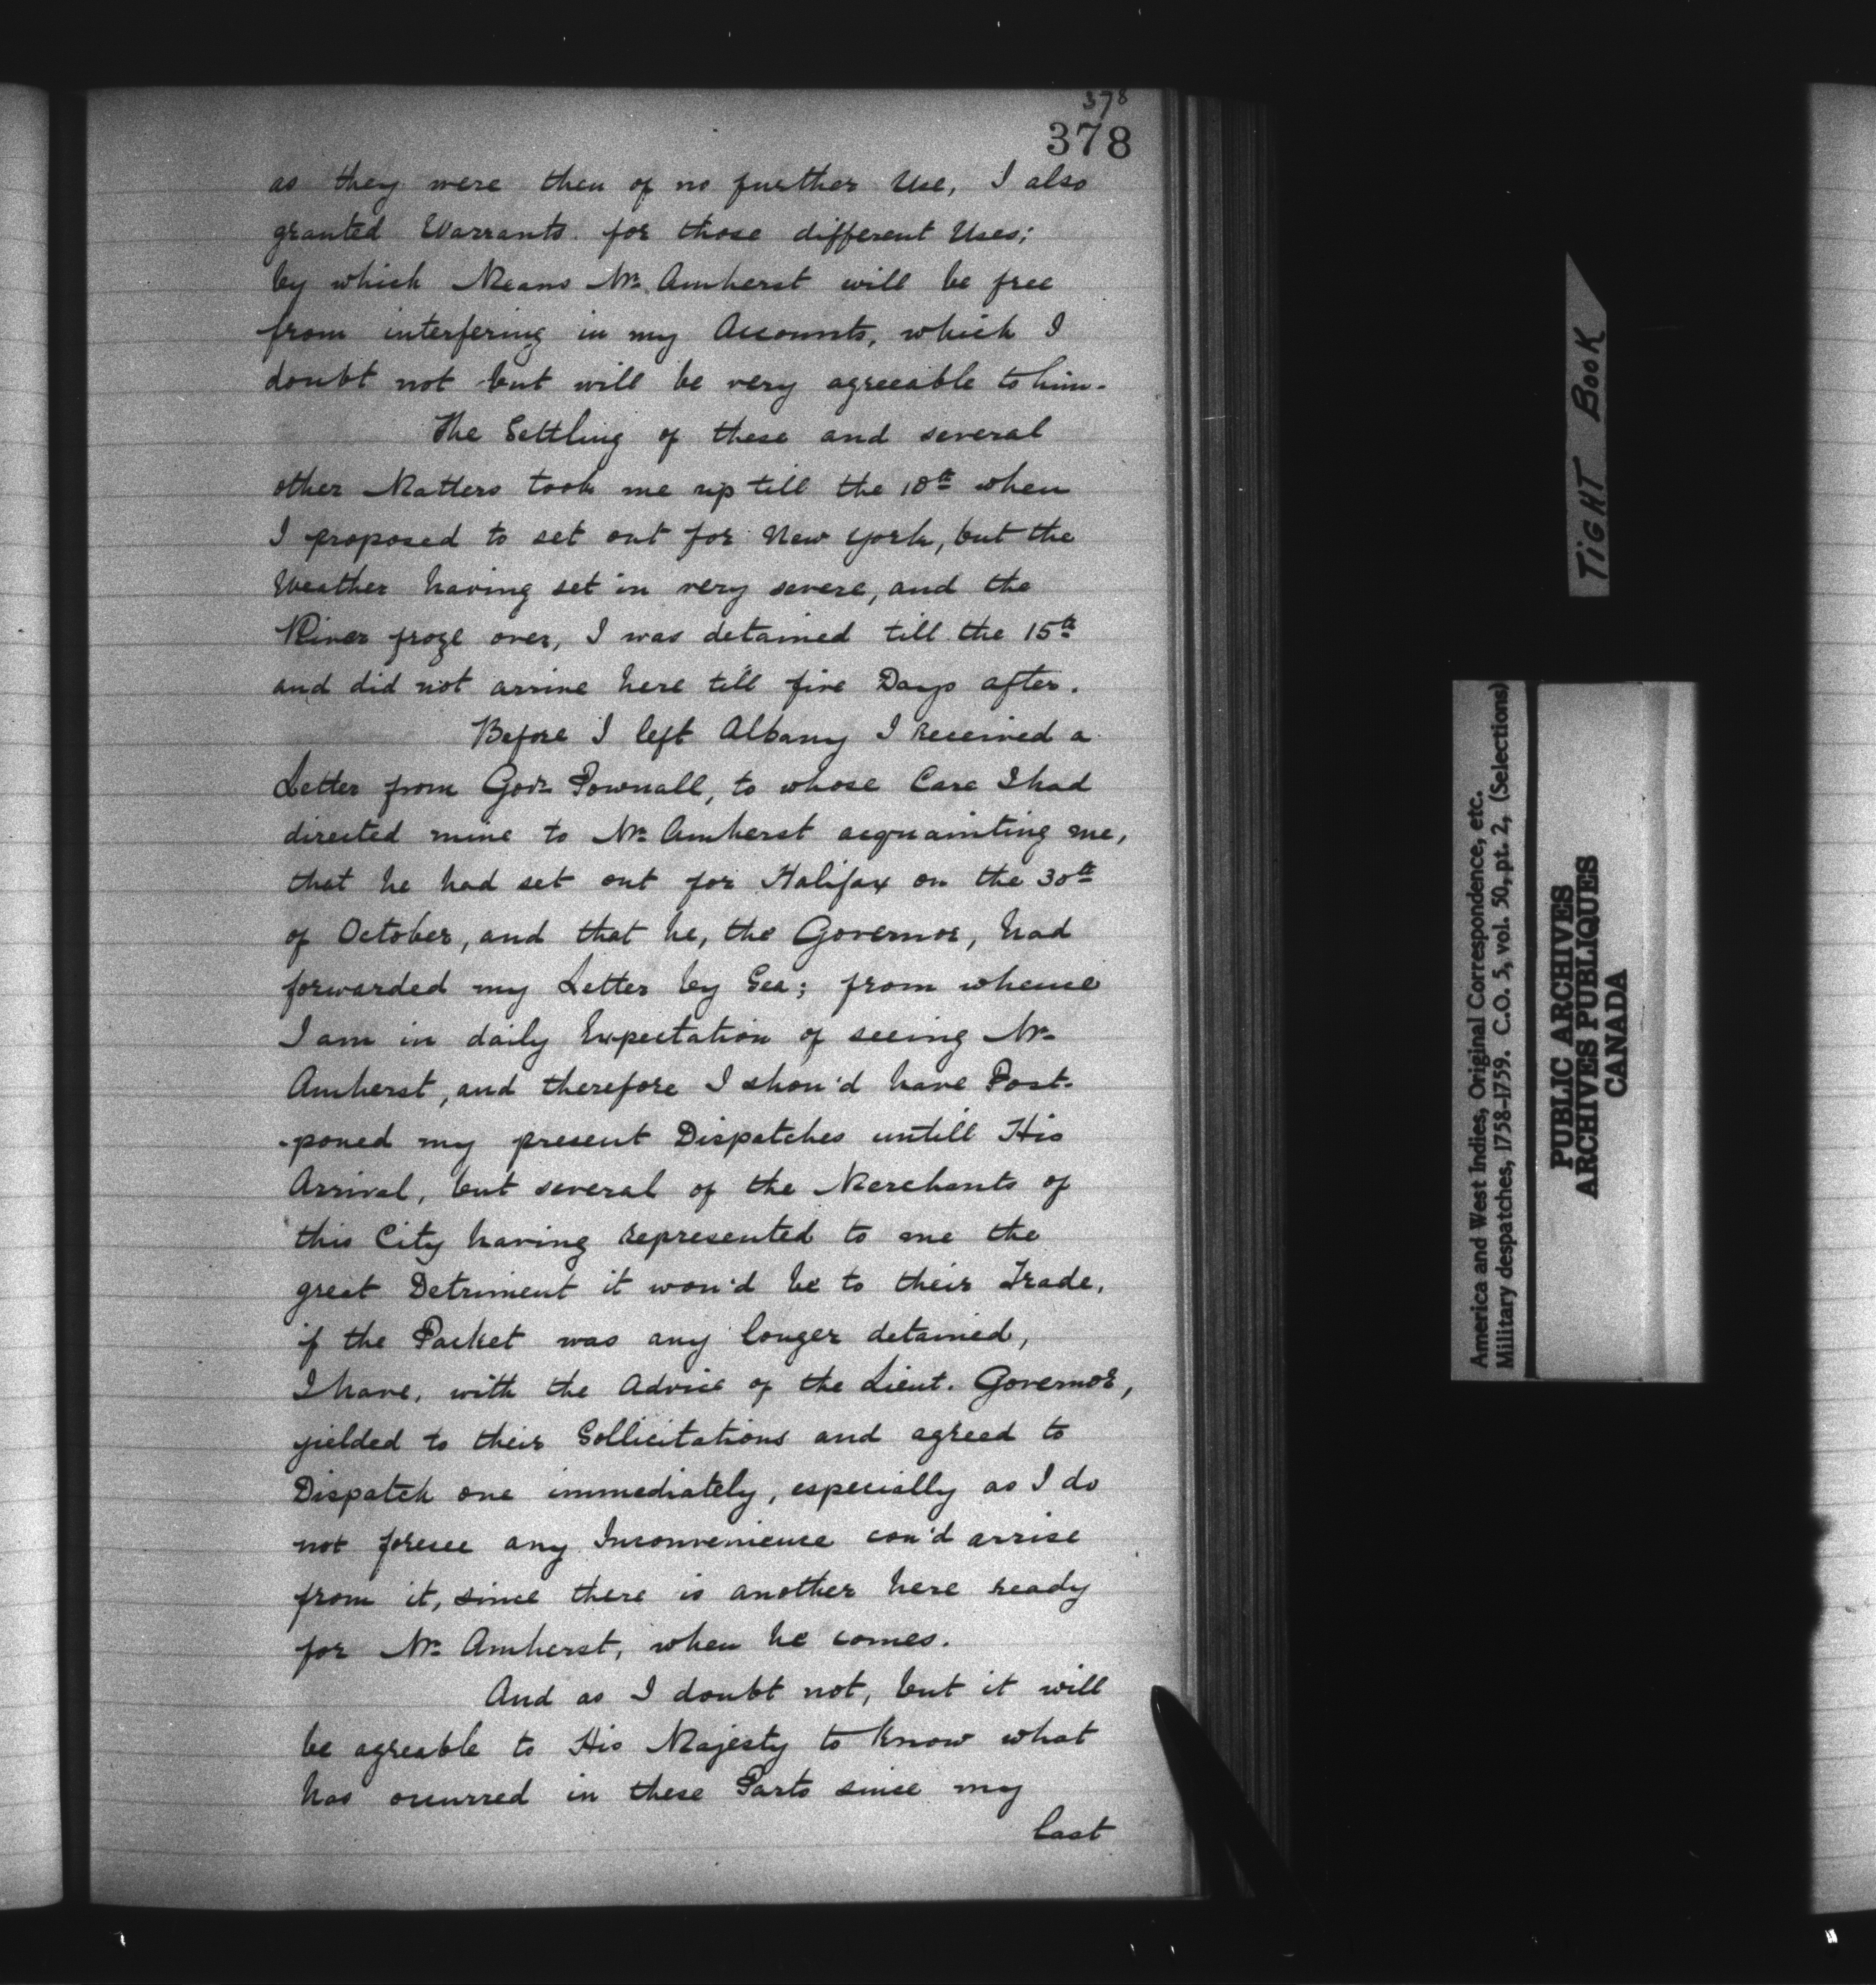 378
378
as they were then of no further Use, I also
granted Warrants for those different Uses;
by which Means Mr. Amherst will be free
from interfering in my Accounts, which I
doubt not but will be very agreeable to him.
The Settling of these and several
other Matters took me up till the 10th when
I proposed to set out for New York, but the
Weather having set in very severe, and the
River froze over, I was detained till the 15th
and did not arrive here till five Days after.
Before I left Albany I received a
Letter from Govr. Pownall, to whose Care I had
directed mine to Mr. Amherst acquainting me,
that he had set out for Halifax on the 30th
of October, and that he, the Governor, had
forwarded my Letter by Sea; from whence
I am in daily Expectation of seeing Mr.
Amherst, and therefore I shou'd have Post-
-poned my present Dispatches untill His
Arrival, but several of the Merchants of
this City having represented to me the
great Detriment it wou'd be to their Trade,
if the Packet was any longer detained,
I have, with the Advice of the Lieut. Governor,
yielded to their Sollicitations and agreed to
Dispatch one immediately, especially as I do
not foresee any Inconvenience cou'd arrise
from it, since there is another here ready
for Mr. Amherst, when he comes.
And as I doubt not, but it will
be agreable to His Majesty to know what
has occurred in these Parts since my
last
TIGHT BOOK
America and West Indies, Original Correspondence, etc.
Military despatches, 1758-1759. C.O. 5, vol. 50, pt. 2, (Selections)
PUBLIC ARCHIVES
ARCHIVES PUBLIQUES
CANADA